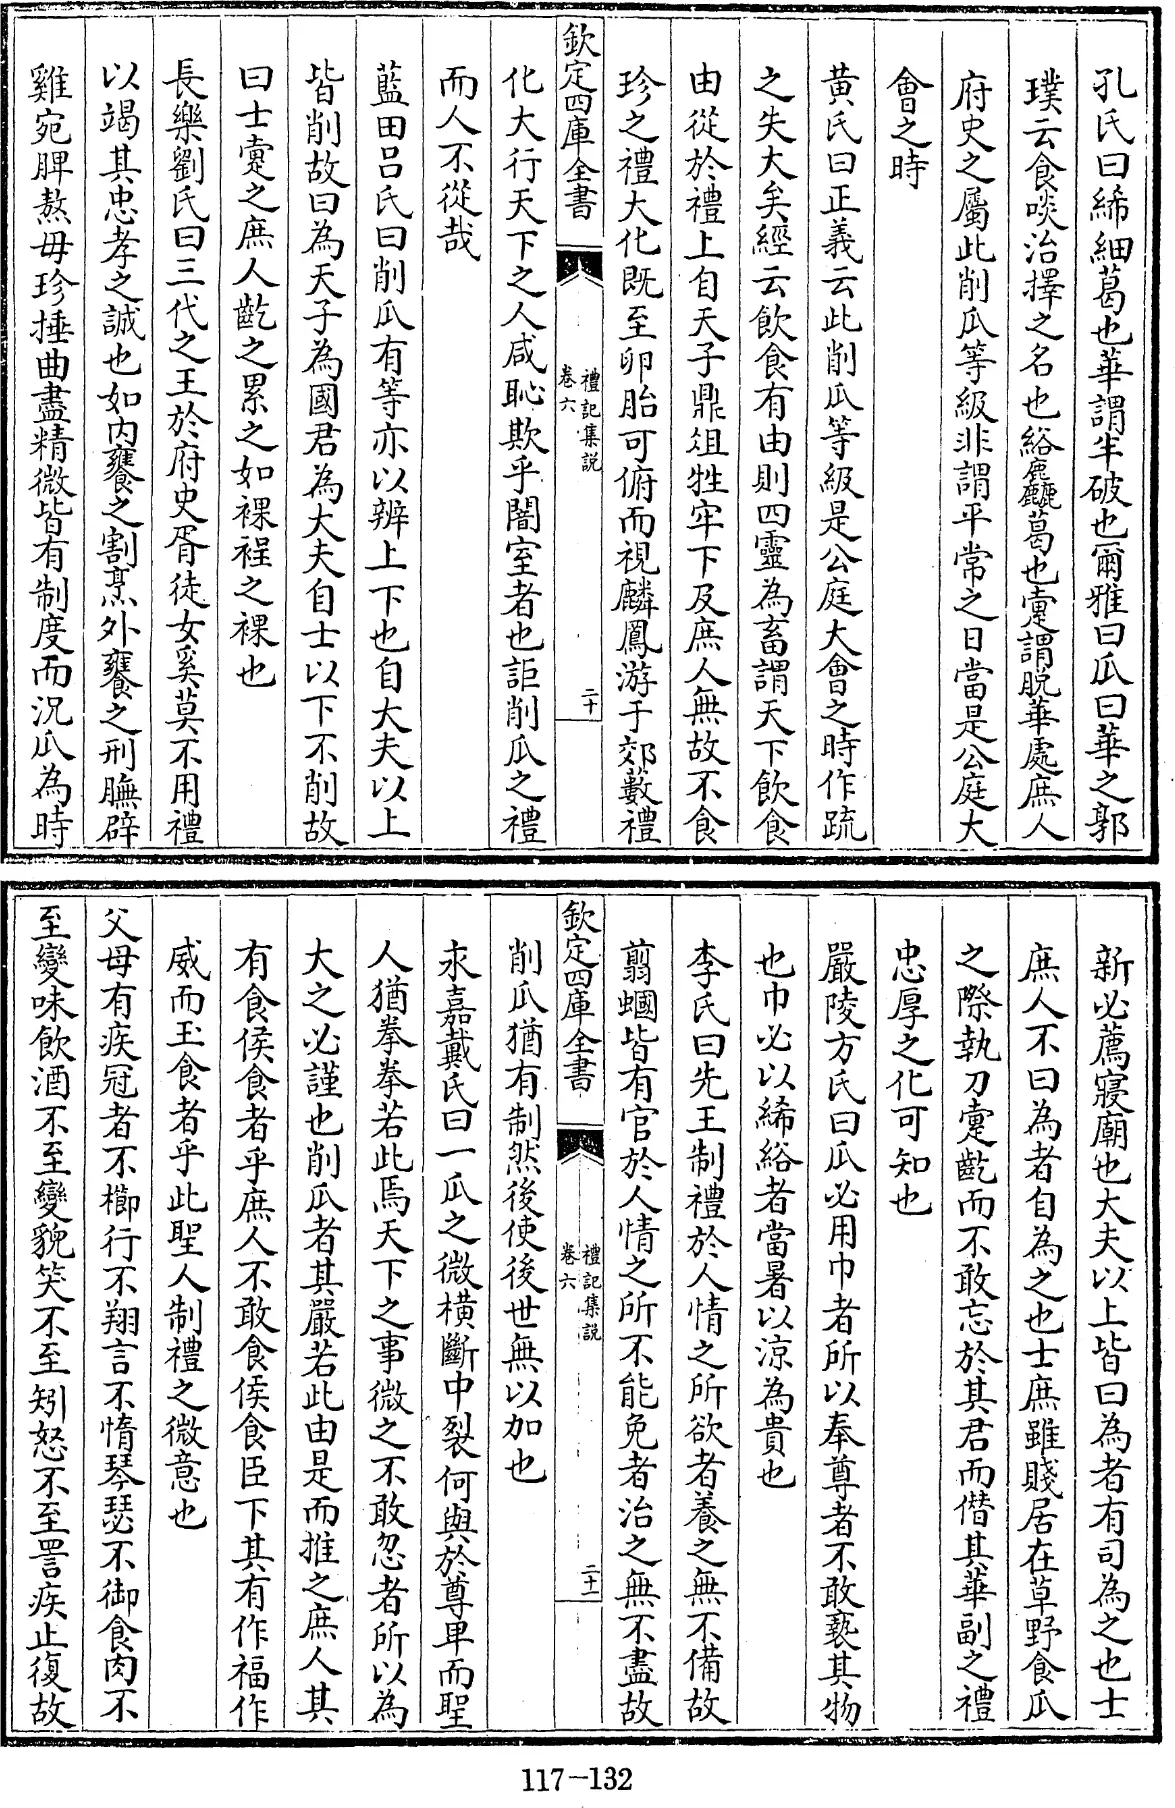 孔氏曰絺細葛也華謂半破也爾雅曰瓜曰華之郭
璞云食啖治擇之名也綌麤葛也疐謂脱華處庶人
府史之屬此削瓜等級非謂平常之日當是公庭大
會之時
黄氏曰正義云此削瓜等級是公庭大會之時作疏
之失大矣經云飲食有由則四靈為畜謂天下飲食
由從於禮上自天子鼎俎牲牢下及庶人無故不食
珍之禮大化既至卵胎可俯而視麟鳳游于郊藪禮
欽定四庫全書
禮記集説
卷六
二十
化大行天下之人咸恥欺乎闇室者也詎削瓜之禮
而人不從哉
藍田吕氏曰削瓜有等亦以辨上下也自大夫以上
皆削故曰為天子為國君為大夫自士以下不削故
曰士疐之庶人齕之累之如裸裎之裸也
長樂劉氏曰三代之王於府史胥徒女奚莫不用禮
以竭其忠孝之誠也如内饔之割烹外饔之刑膴辟
雞宛脾熬毋珍捶曲盡精微皆有制度而況瓜為時
新必薦寢廟也大夫以上皆曰為者有司為之也士
庶人不曰為者自為之也士庶雖賤居在草野食瓜
之際執刀疐齕而不敢忘於其君而僭其華副之禮
忠厚之化可知也
嚴陵方氏曰瓜必用巾者所以奉尊者不敢褻其物
也巾必以絺綌者當暑以涼為貴也
李氏曰先王制禮於人情之所欲者養之無不備故
翦蟈皆有官於人情之所不能免者治之無不盡故
欽定四庫全書
禮記集説
卷六
二十一
削瓜猶有制然後使後世無以加也
永嘉戴氏曰一瓜之微横斷中裂何與於尊卑而聖
人猶拳拳若此焉天下之事微之不敢忽者所以為
大之必謹也削瓜者其嚴若此由是而推之庶人其
有食侯食者乎庶人不敢食侯食臣下其有作福作
威而玉食者乎此聖人制禮之微意也
父母有疾冠者不櫛行不翔言不惰琴瑟不御食肉不
至變味飲酒不至變貌笑不至矧怒不至詈疾止復故
117-132